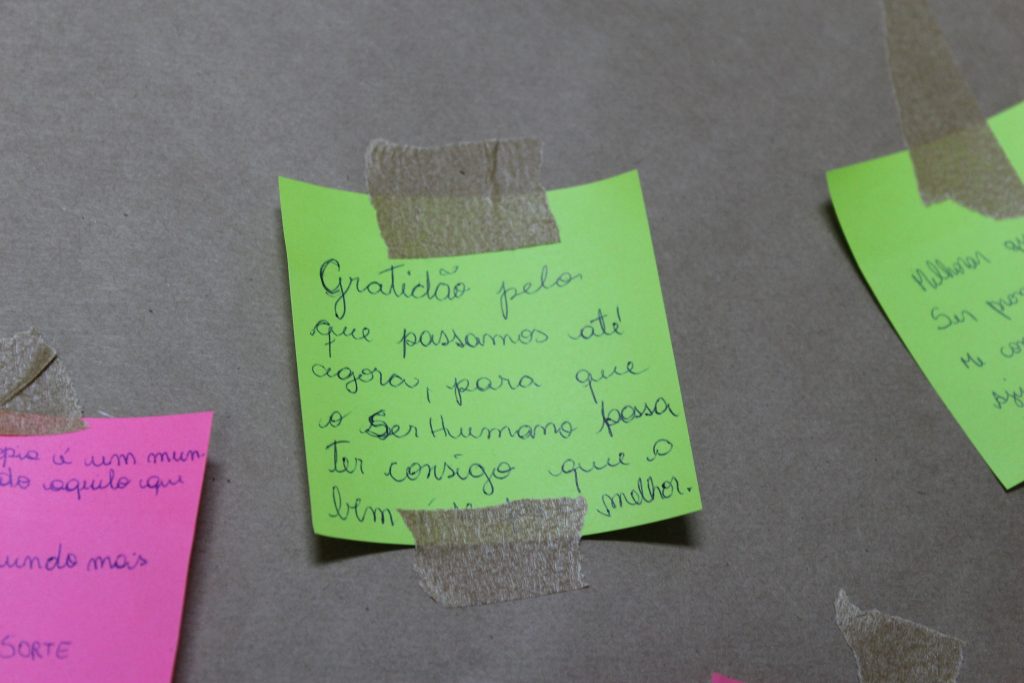 Gratidão pelo
que passamos até
agora, para que
o Ser Humano possa
ter consigo que o
bem é melhor.
é um mun-
do aquilo que
mais
SORTE
Melhorar
Ser